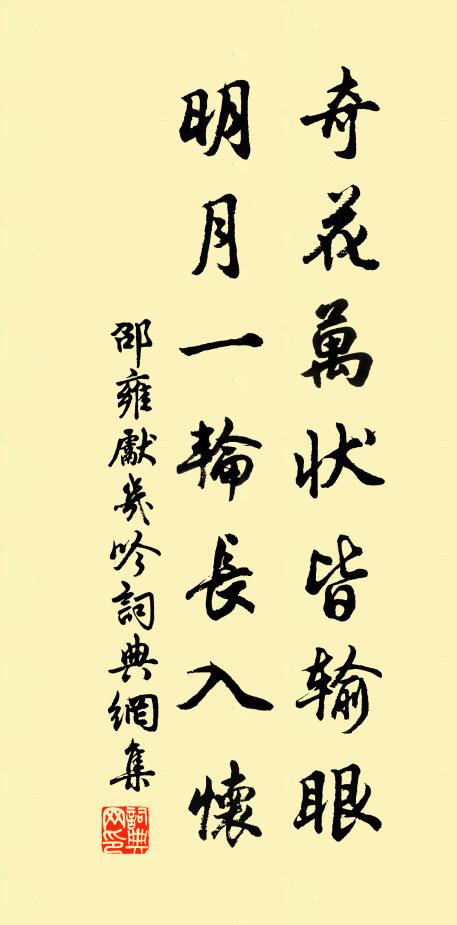 奇花萬状皆输眼
明月一輪長入懷
邵雍獻幾吟詞典網集
詞典
网印